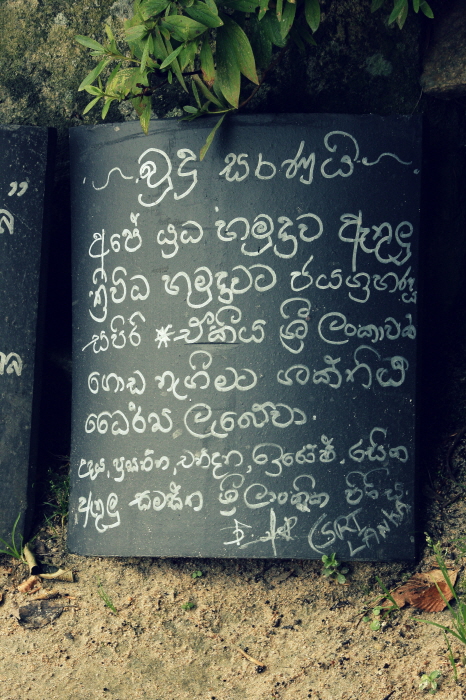 ~බුදු සරණයි~
අපේ යුධ හමුදාව ඇතුලු
ත්‍රිවිධ හමුදාවට
සපිරි * ඒකීය ශ්‍රී ලංකාවක්
ගොඩ නැගීමට ශක්තිය
ධෛර්ය ලැබේවා
උදය, ප්‍රසන්න, චන්දන,
ඇතුලු සමස්ත ශ්‍රී ලාංකික පිරිස.
SRI LANKA